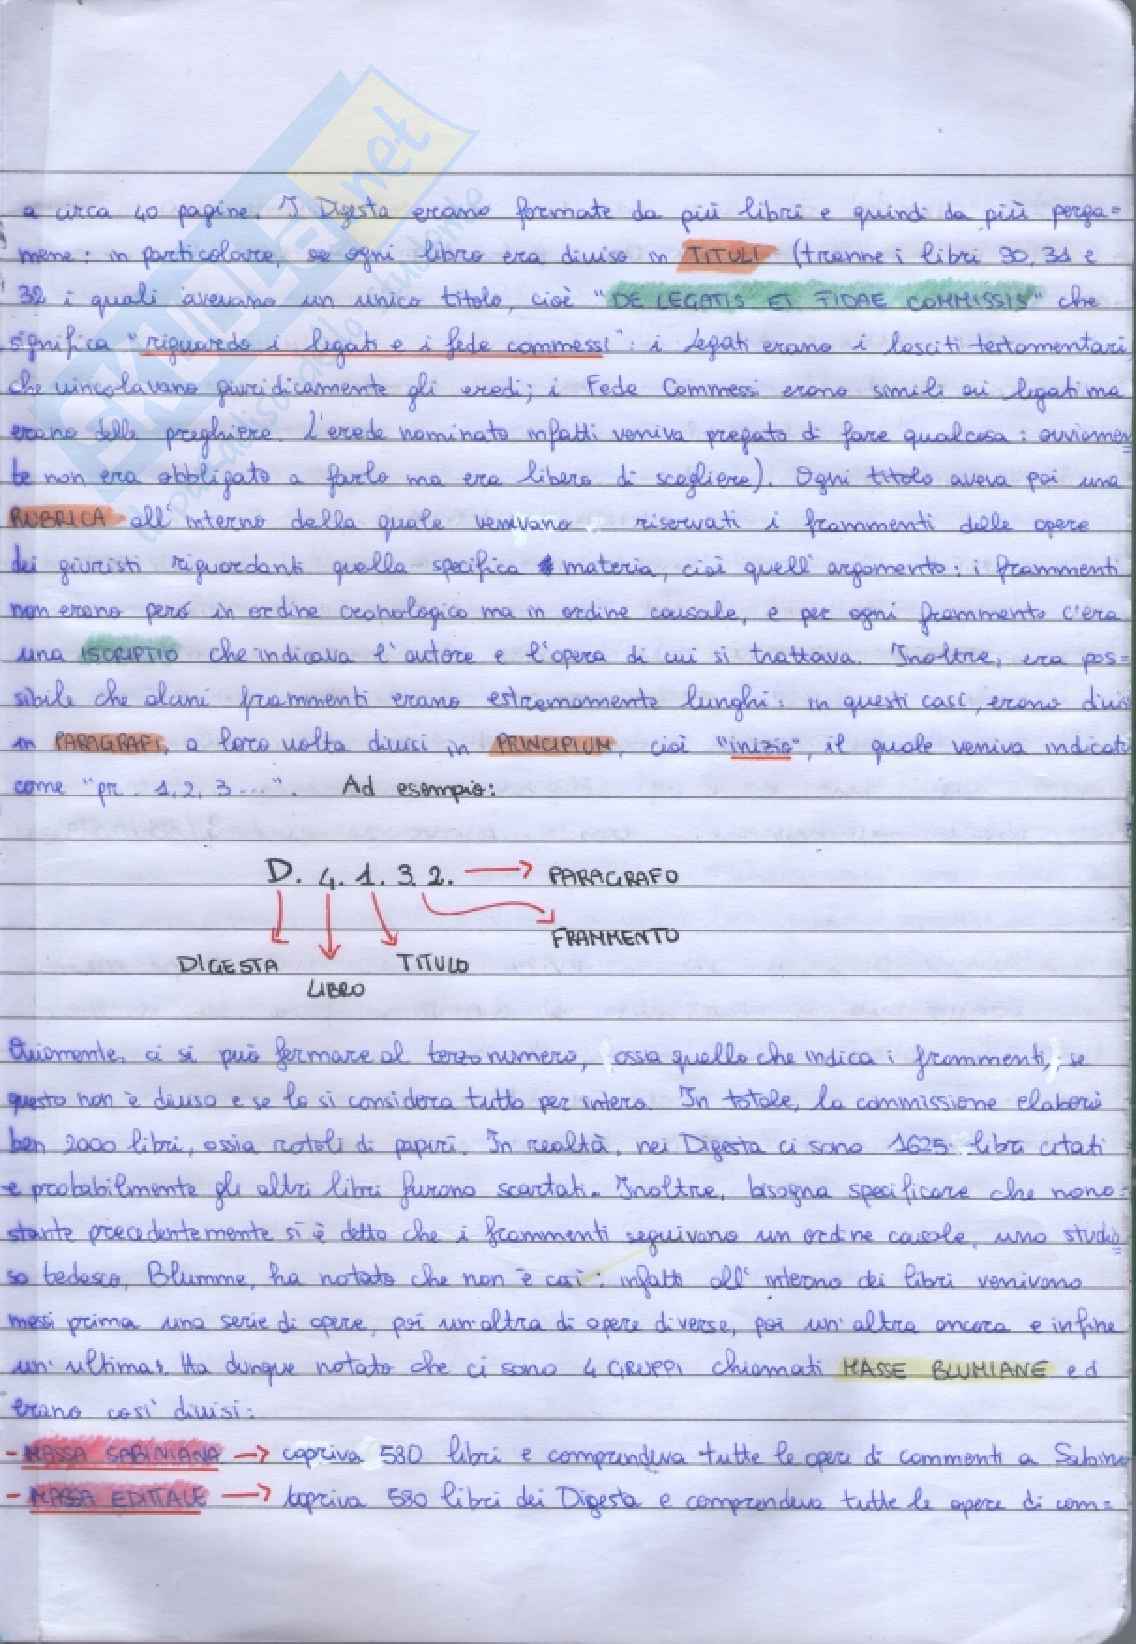 a circa 40 pagine. I Digesta erano formate da più libri e quindi da più perga=
mene: in particolare, se ogni libro era diviso in TITULI (tranne i libri 30, 31 e
32 i quali avevano un unico titolo, cioè "DE LEGATIS ET FIDAE COMMISSIS" che
significa "riguardo i legati e i fede commessi": i legati erano i lasciti testamentari
che vincolavano giuridicamente gli eredi; i Fede Commessi erano simili ai legati ma
erano delle preghiere. L'erede nominato infatti veniva pregato di fare qualcosa: ovviamen=
te non era obbligato a farlo ma era libero di scegliere). Ogni titolo aveva poi una
RUBRICA all'interno della quale venivano riservati i frammenti delle opere
dei giuristi riguardanti quella specifica materia, cioè quell'argomento: i frammenti
non erano però in ordine cronologico ma in ordine causale, e per ogni frammento c'era
una ISCRIPTIO che indicava l'autore e l'opera di cui si trattava. Inoltre, era pos=
sibile che alcuni frammenti erano estremamente lunghi: in questi casi, erano divisi
in PARAGRAFI, a loro volta divisi in PRINCIPIUM, cioè "inizio", il quale veniva indicato
come "pr. 1, 2, 3...". Ad esempio:
D. 4. 1. 3. 2. → PARAGRAFO
FRAMMENTO
DIGESTA TITULO
LIBRO
Ovviamente, ci si può fermare al terzo numero, (ossia quello che indica i frammenti,) se
questo non è diviso e se lo si considera tutto per intero. In totale, la commissione elaborò
ben 2000 libri, ossia rotoli di papiri. In realtà, nei Digesta ci sono 1625 libri citati
e probabilmente gli altri libri furono scartati. Inoltre, bisogna specificare che nono=
stante precedentemente si è detto che i frammenti seguivano un ordine causale, uno studio=
so tedesco, Blumme, ha notato che non è così: infatti all'interno dei libri venivano
messi prima una serie di opere, poi un'altra di opere diverse, poi un'altra ancora e infine
un'ultima. Ha dunque notato che ci sono 4 GRUPPI chiamati MASSE BLUMIANE ed
erano così divisi:
- MASSA SABINIANA → copriva 530 libri e comprendeva tutte le opere di commenti a Sabino
- MASSA EDITTALE → copriva 580 libri dei Digesta e comprendeva tutte le opere di com=
SKUOLA.net